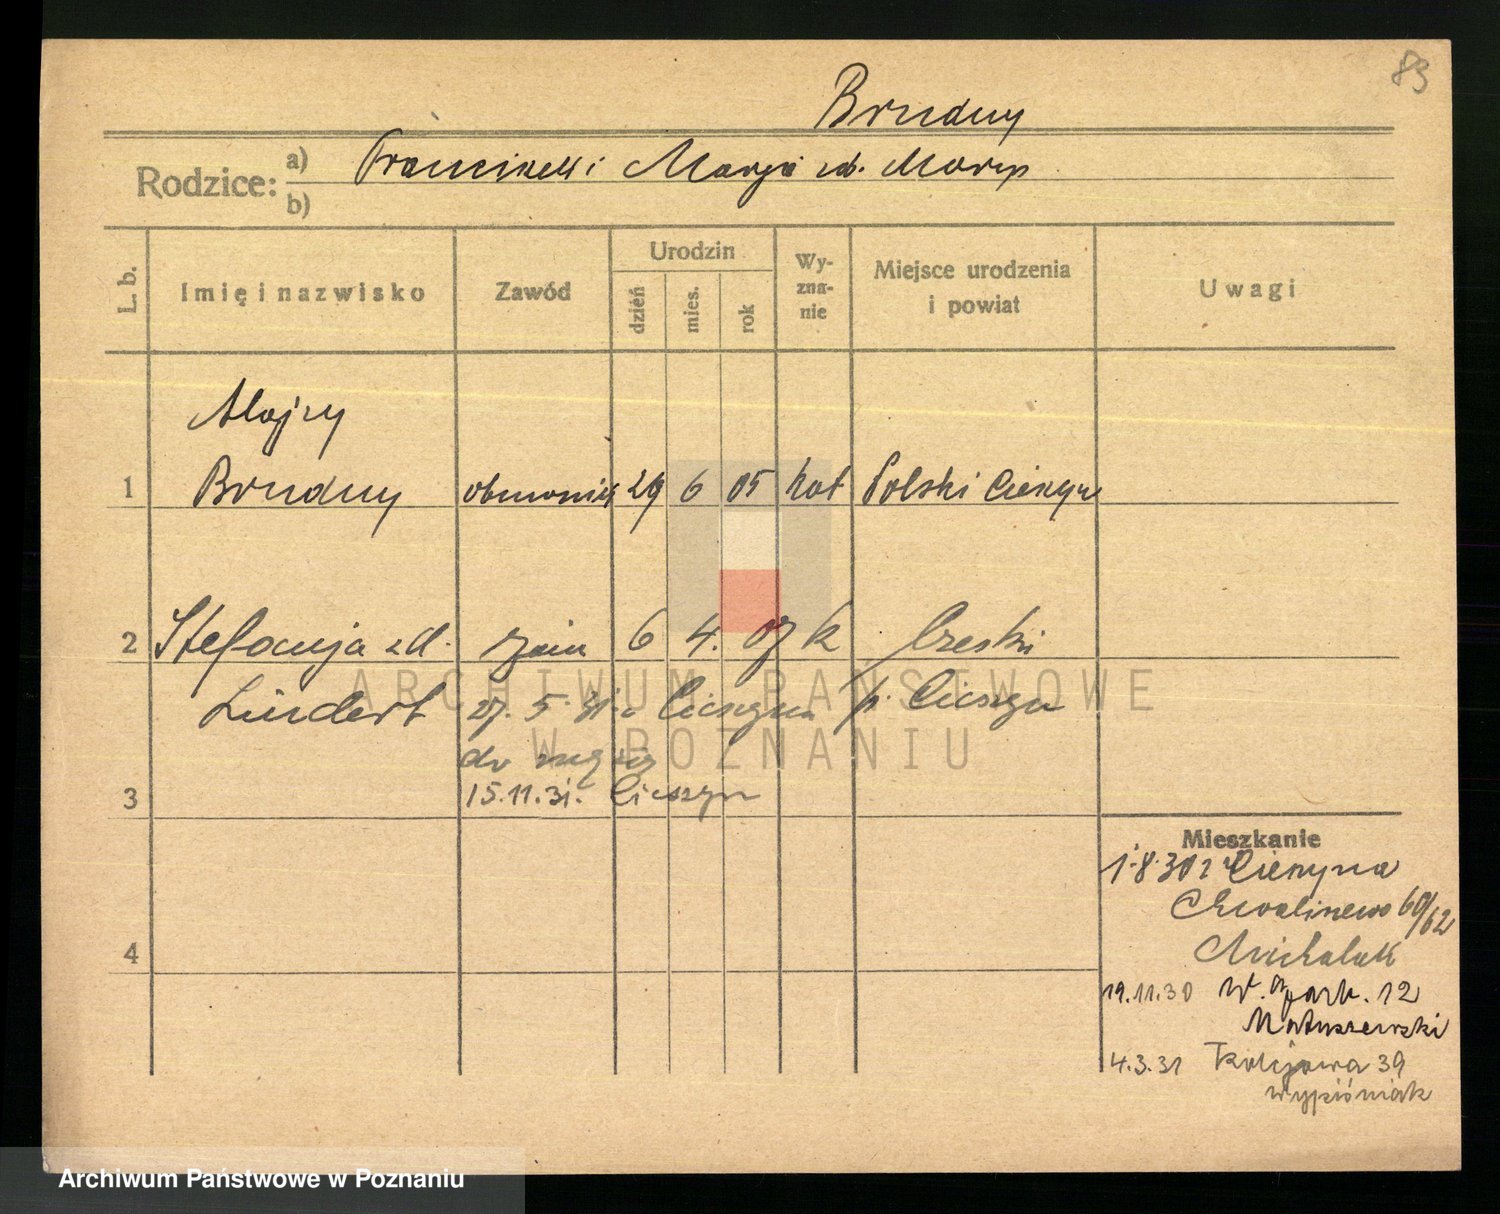 83
Brudny
Rodzice: a) Franciszek i Marja zd. Moryś
b)
L. b. Imię i nazwisko Zawód Urodzin dzień mies. rok Wyznanie Miejsce urodzenia i powiat Uwagi
Alojzy
1 Brudny 29 6 05 kat Polski Cieszyn
2 Stefanja zd. żona 6 4. 07 k Czeski
Lindert 27. 5. 31. z Cieszyna p. Cieszyn
do męża
3 15.11.31. Cieszyn
4
Mieszkanie
1.8.30 z Cieszyna
Chwaliszewo 60/62
Michalak
19.11.30 W. Garb. 12
Matuszewski
4.3.31 Kolejowa 39
Wypiśniak
ARCHIWUM PAŃSTWOWE
W POZNANIU
Archiwum Państwowe w Poznaniu